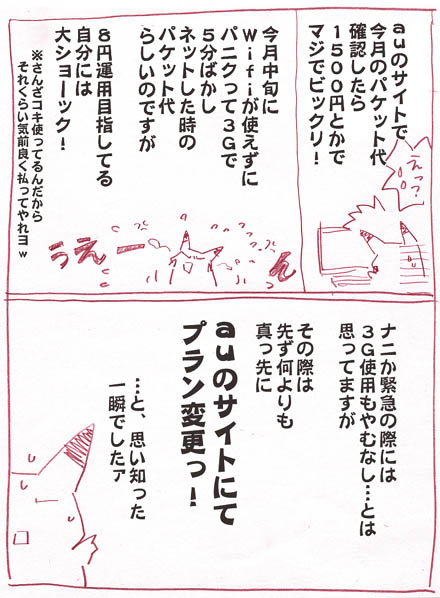 auのサイトで
今月のパケット代
確認したら
1500円とかで
マジでビックリ!
えっ?
今月中旬に
Wifiが使えずに
パニクって3Gで
5分ばかし
ネットした時の
パケット代
らしいのですが
8円運用目指してる
自分には
大ショーック!
※さんざコキ使ってるんだから
それくらい気前良く払ってやれヨw
うえーん
ナニか緊急の際には
3G使用もやむなし…とは
思ってますが
その際は
先ず何よりも
真っ先に
auのサイトにて
プラン変更っ!
…と、思い知った
一瞬でしたァ